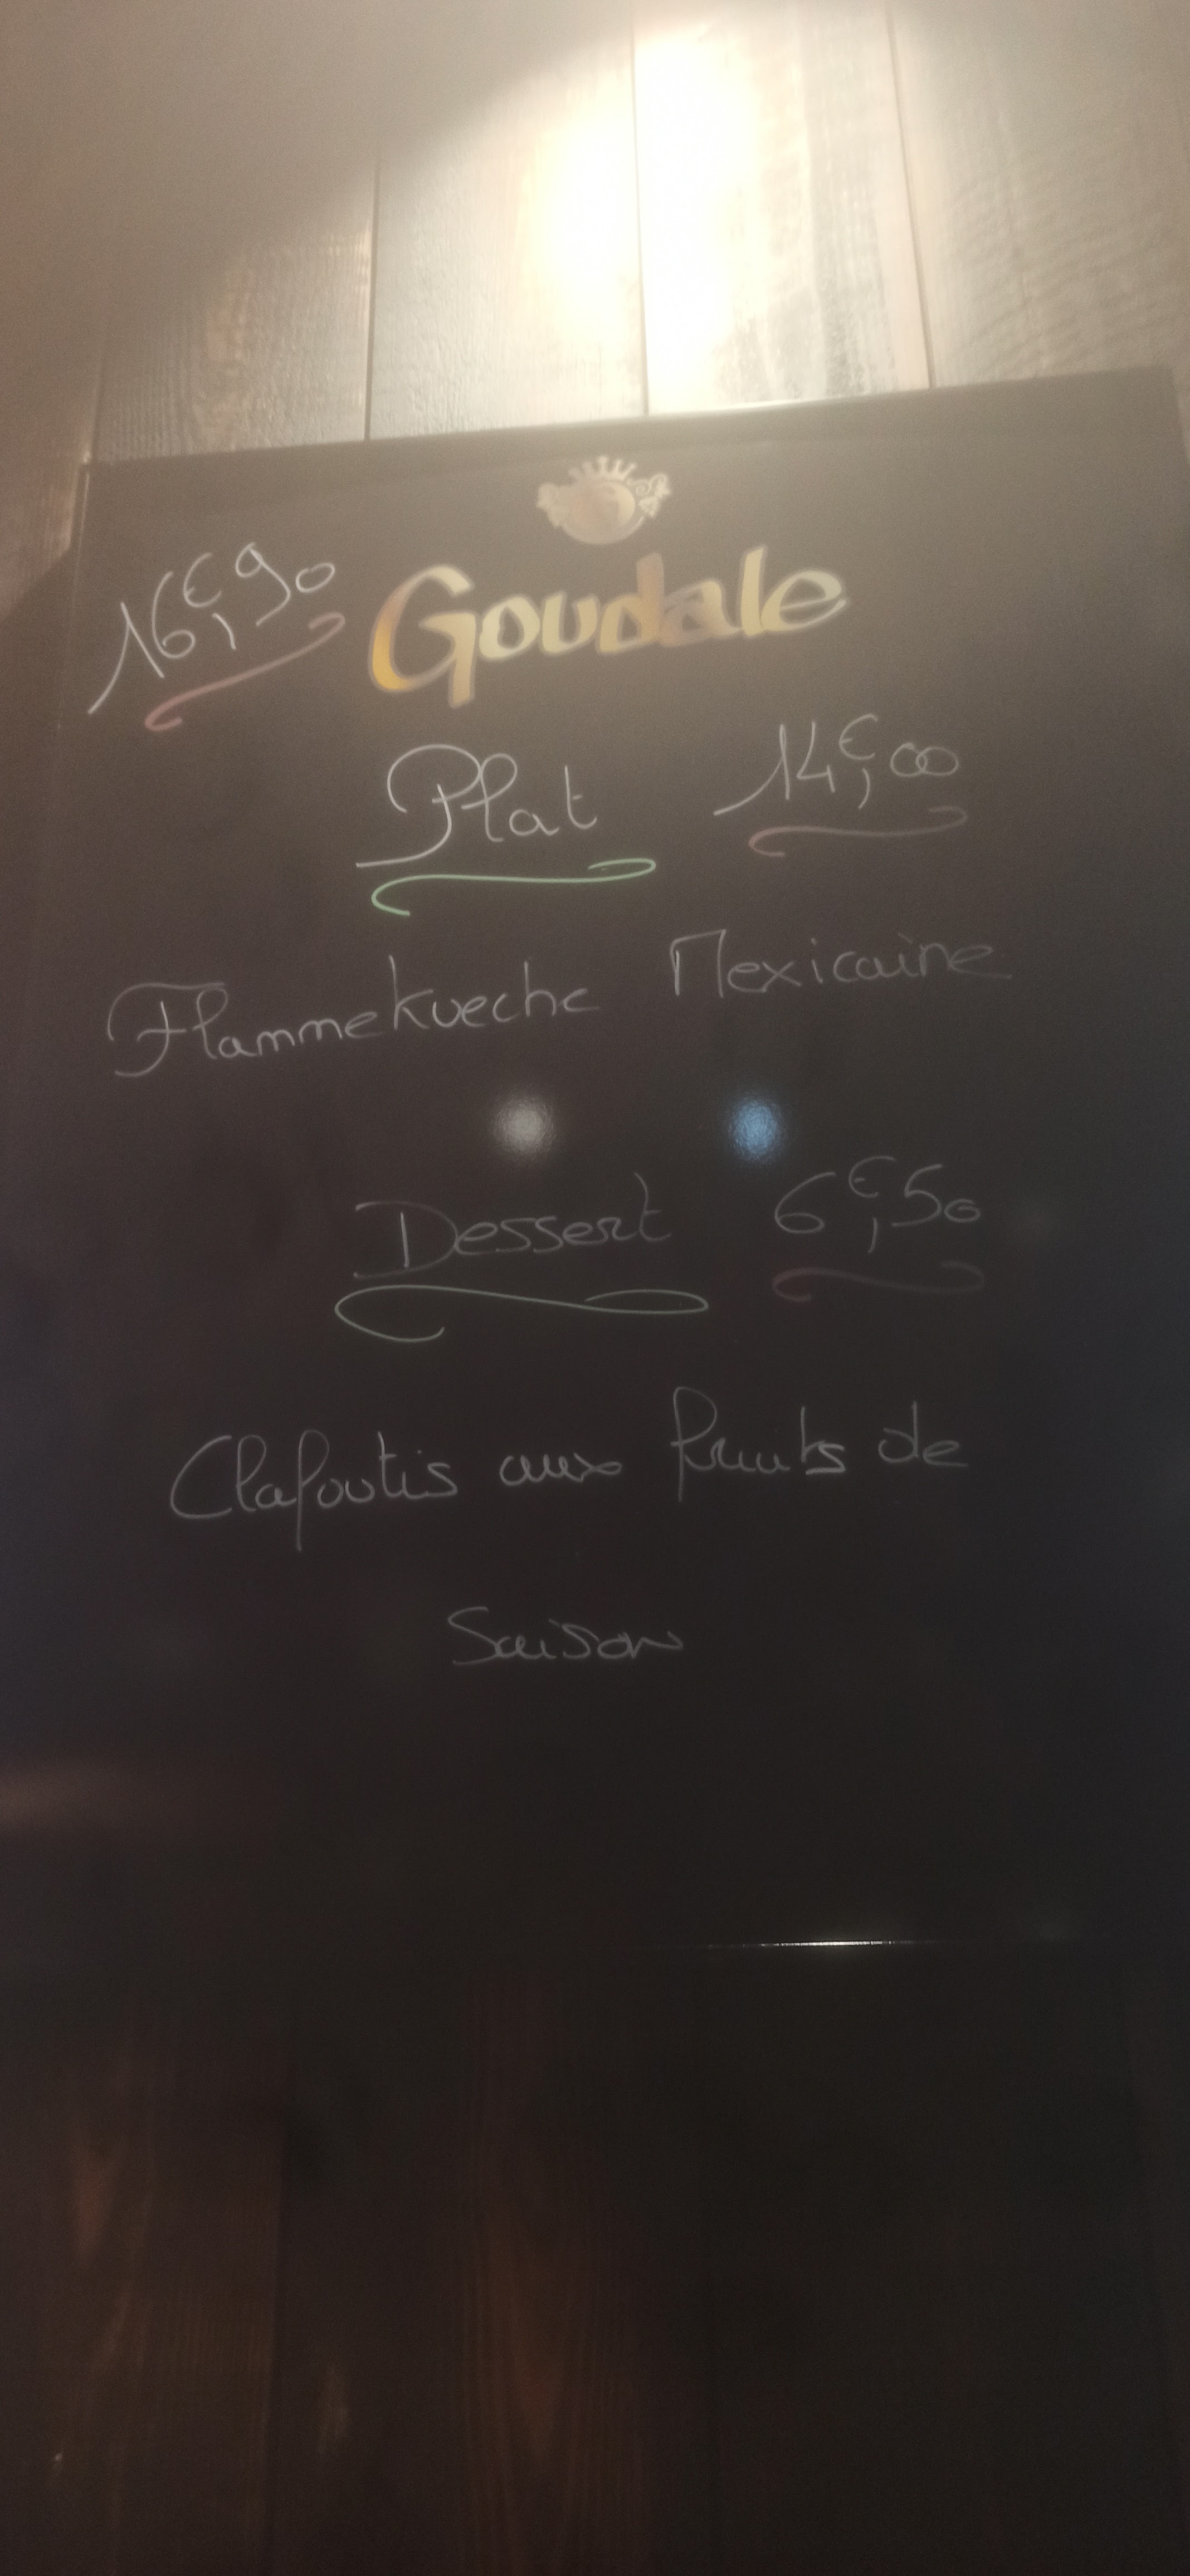 16€,90
Goudale
Plat 14€,00
Flammekueche Mexicaine
Dessert 6€,50
Clafoutis aux fruits de
Saison